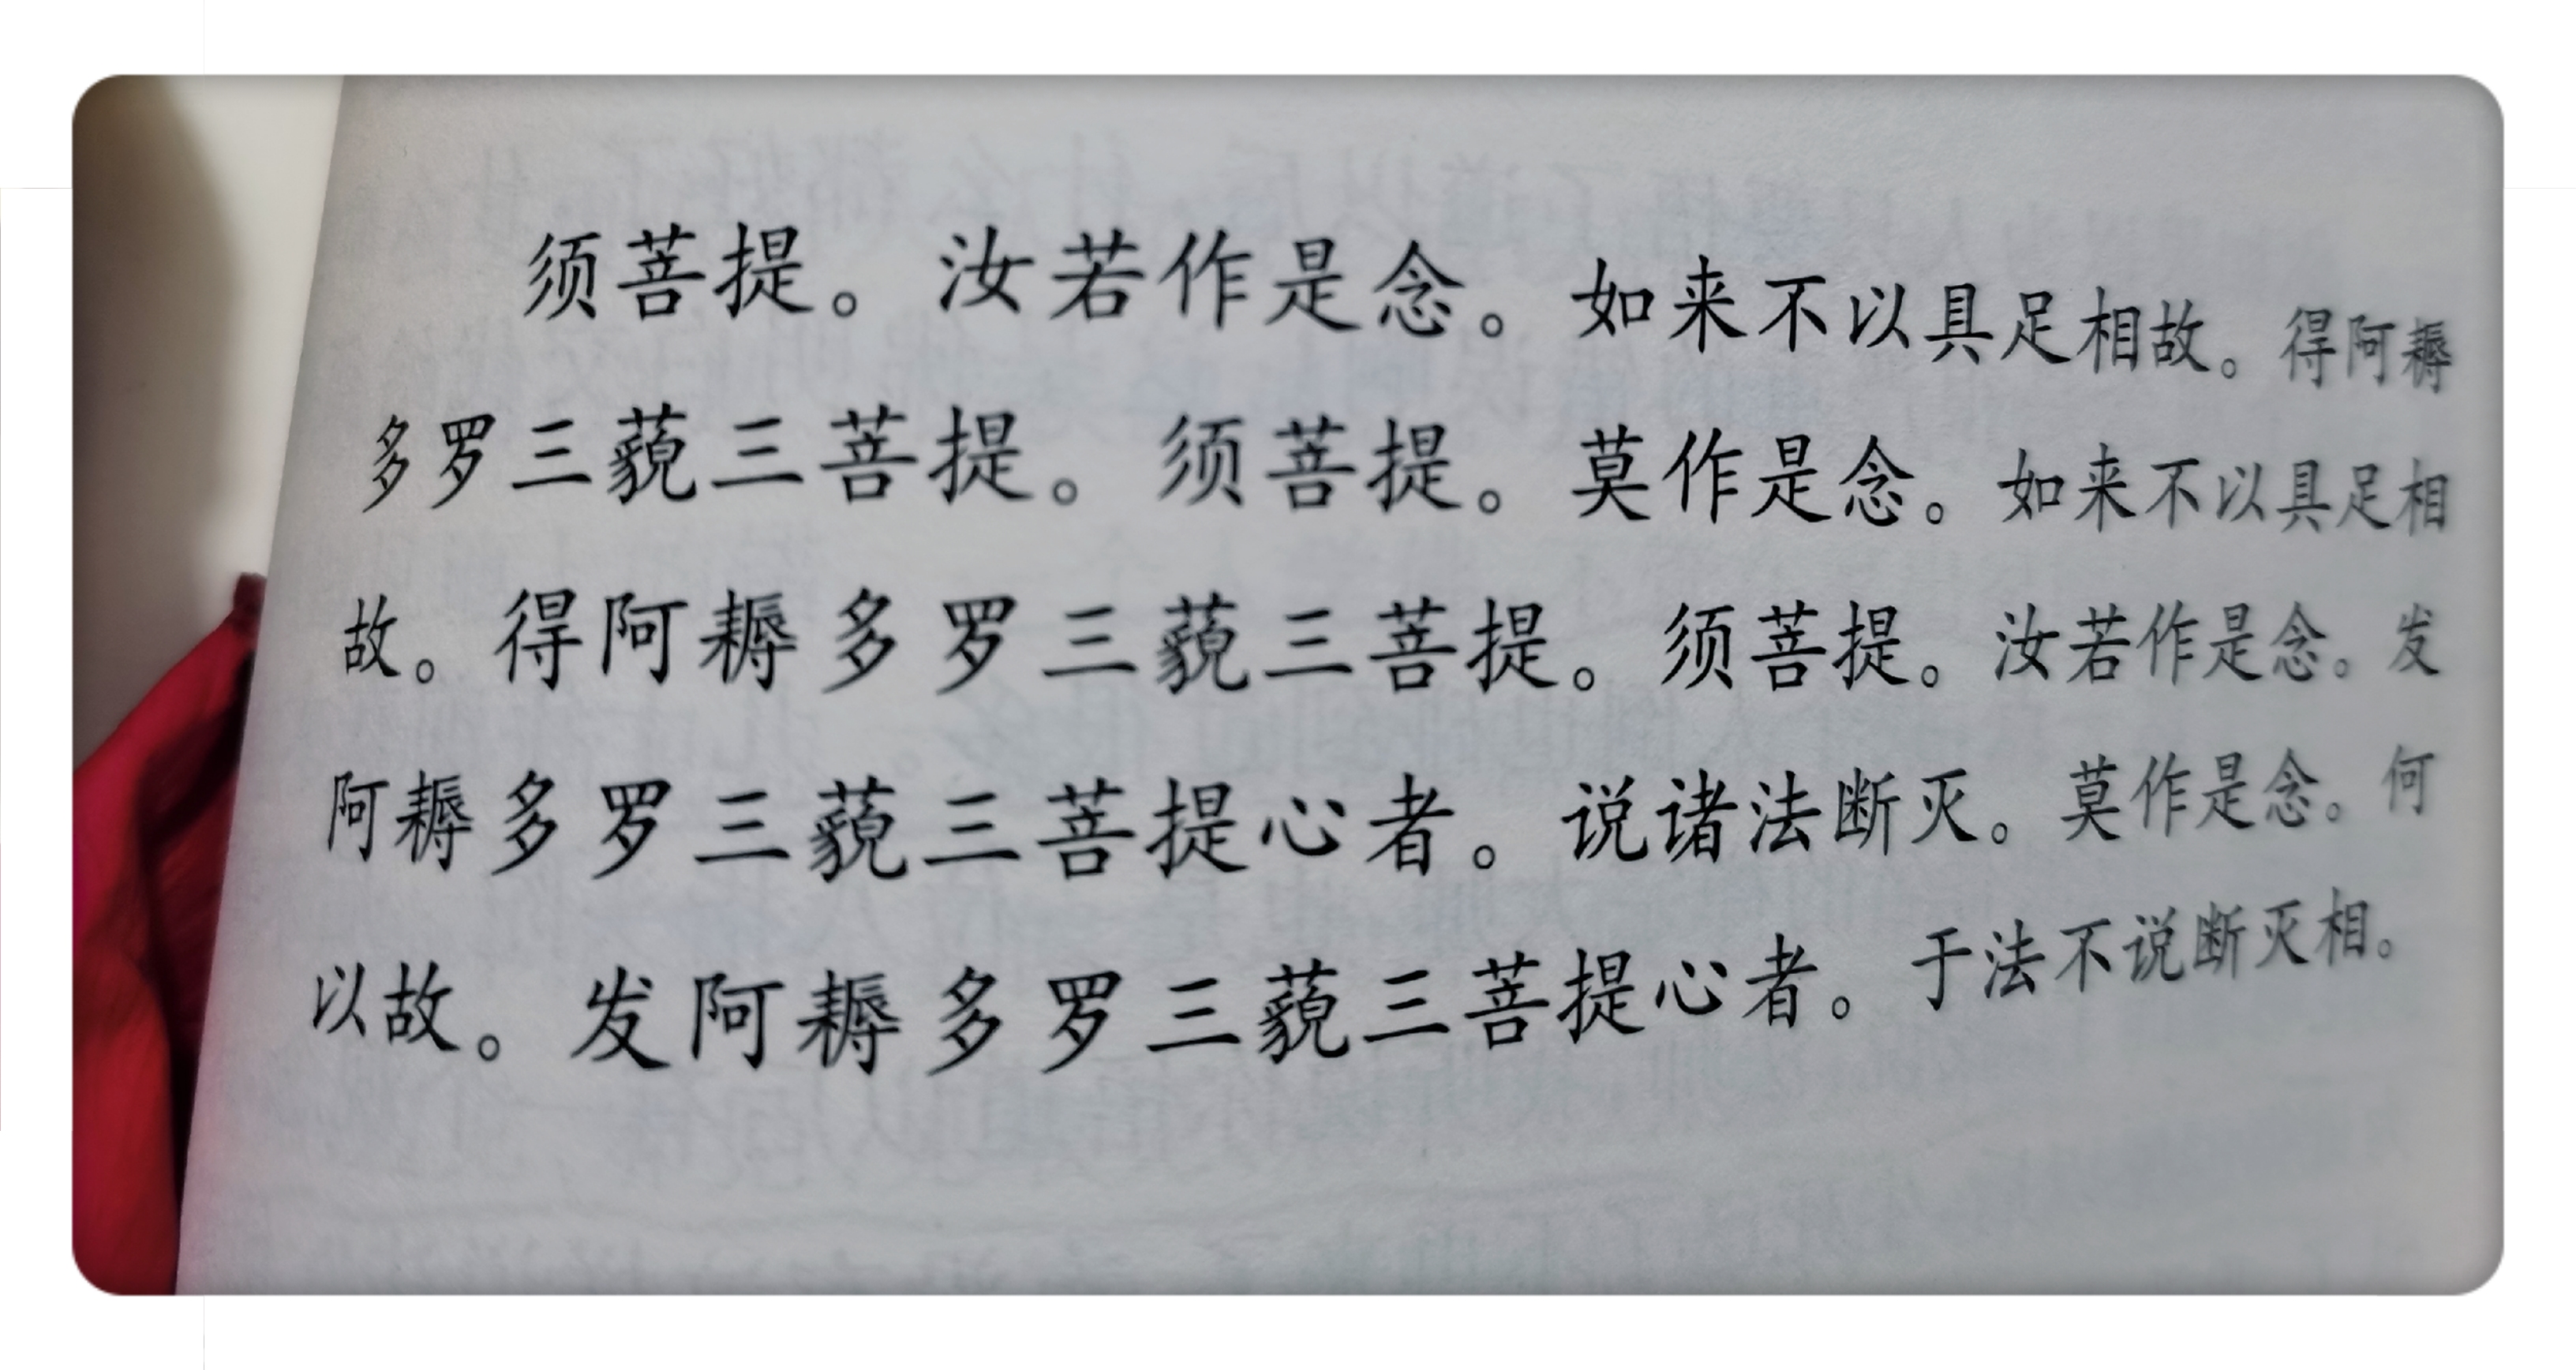 须菩提。汝若作是念。如来不以具足相故。得阿耨
多罗三藐三菩提。须菩提。莫作是念。如来不以具足相
故。得阿耨多罗三藐三菩提。须菩提。汝若作是念。发
阿耨多罗三藐三菩提心者。说诸法断灭。莫作是念。何
以故。发阿耨多罗三藐三菩提心者。于法不说断灭相。